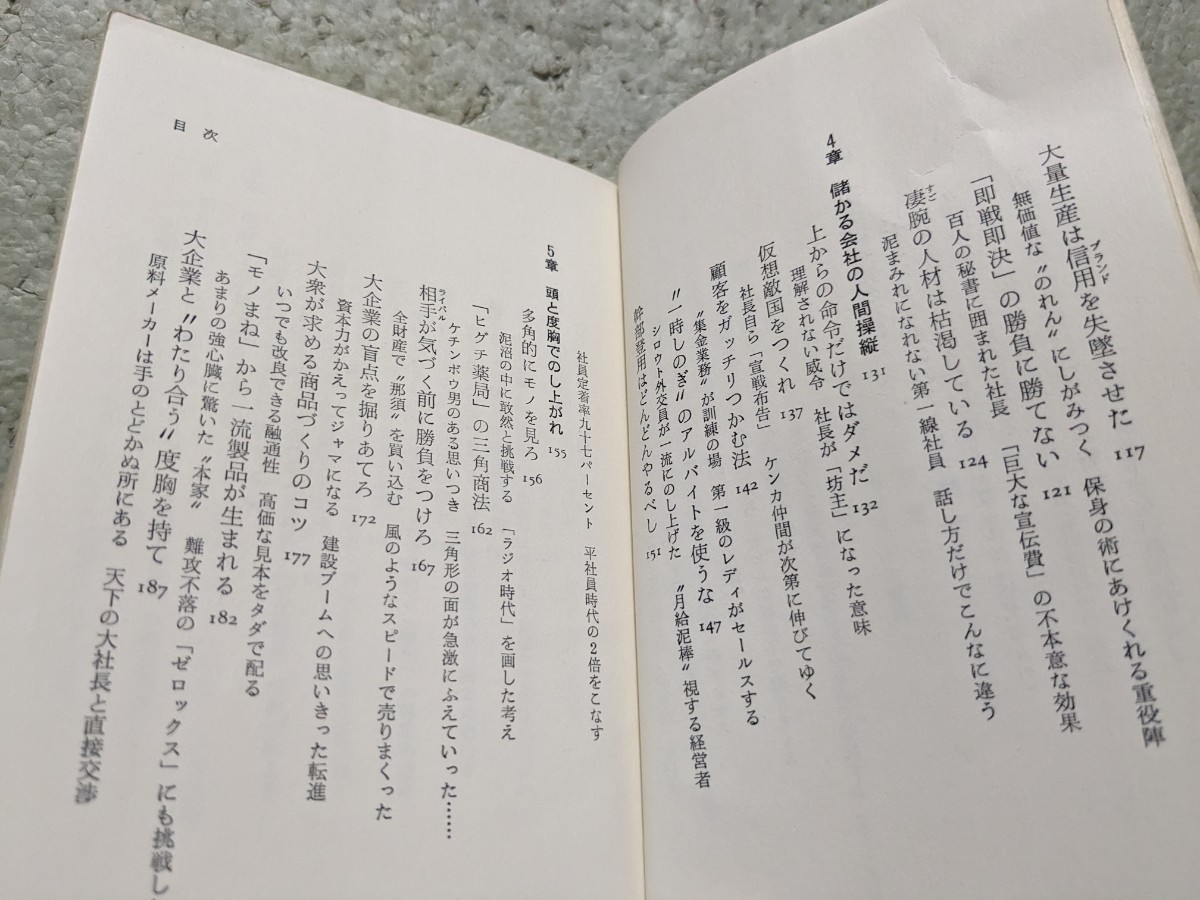 大量生産は信用を失墜させた 117
ブランド
無価値な〝のれん〟にしがみつく 保身の術にあけくれる重役陣
「即戦即決」の勝負に勝てない 121
百人の秘書に囲まれた社長 「巨大な宣伝費」の不本意な効果
凄腕の人材は枯渇している 124
すご
泥まみれになれない第一線社員 話し方だけでこんなに違う
4章 儲かる会社の人間操縦 131
上からの命令だけではダメだ 132
理解されない威令 社長が「坊主」になった意味
仮想敵国をつくれ 137
社長自ら「宣戦布告」 ケンカ仲間が次第に伸びてゆく
顧客をガッチリつかむ法 142
〝集金業務〟が訓練の場 第一級のレディがセールスする
〝一時しのぎ〟のアルバイトを使うな 147
シロウト外交員が一流にのし上げた 〝月給泥棒〟視する経営者
幹部登用はどんどんやるべし 151
社員定着率九十七パーセント 平社員時代の2倍をこなす
5章 頭と度胸でのし上がれ 155
多角的にモノを見ろ 156
泥沼の中に敢然と挑戦する 「ラジオ時代」を画した考え
「ヒグチ薬局」の三角商法 162
ケチンボウ男のある思いつき 三角形の面が急激にふえていった……
相手が気づく前に勝負をつけろ 167
ライバル
全財産で〝那須〟を買い込む 風のようなスピードで売りまくった
大企業の盲点を掘りあてろ 172
資本力がかえってジャマになる 建設ブームへの思いきった転進
大衆が求める商品づくりのコツ 177
いつでも改良できる融通性 高価な見本をタダで配る
「モノまね」から一流製品が生まれる 182
あまりの強心臓に驚いた〝本家〟 難攻不落の「ゼロックス」にも挑戦し
大企業と〝わたり合う〟度胸を持て 187
原料メーカーは手のとどかぬ所にある 天下の大社長と直接交渉
目次